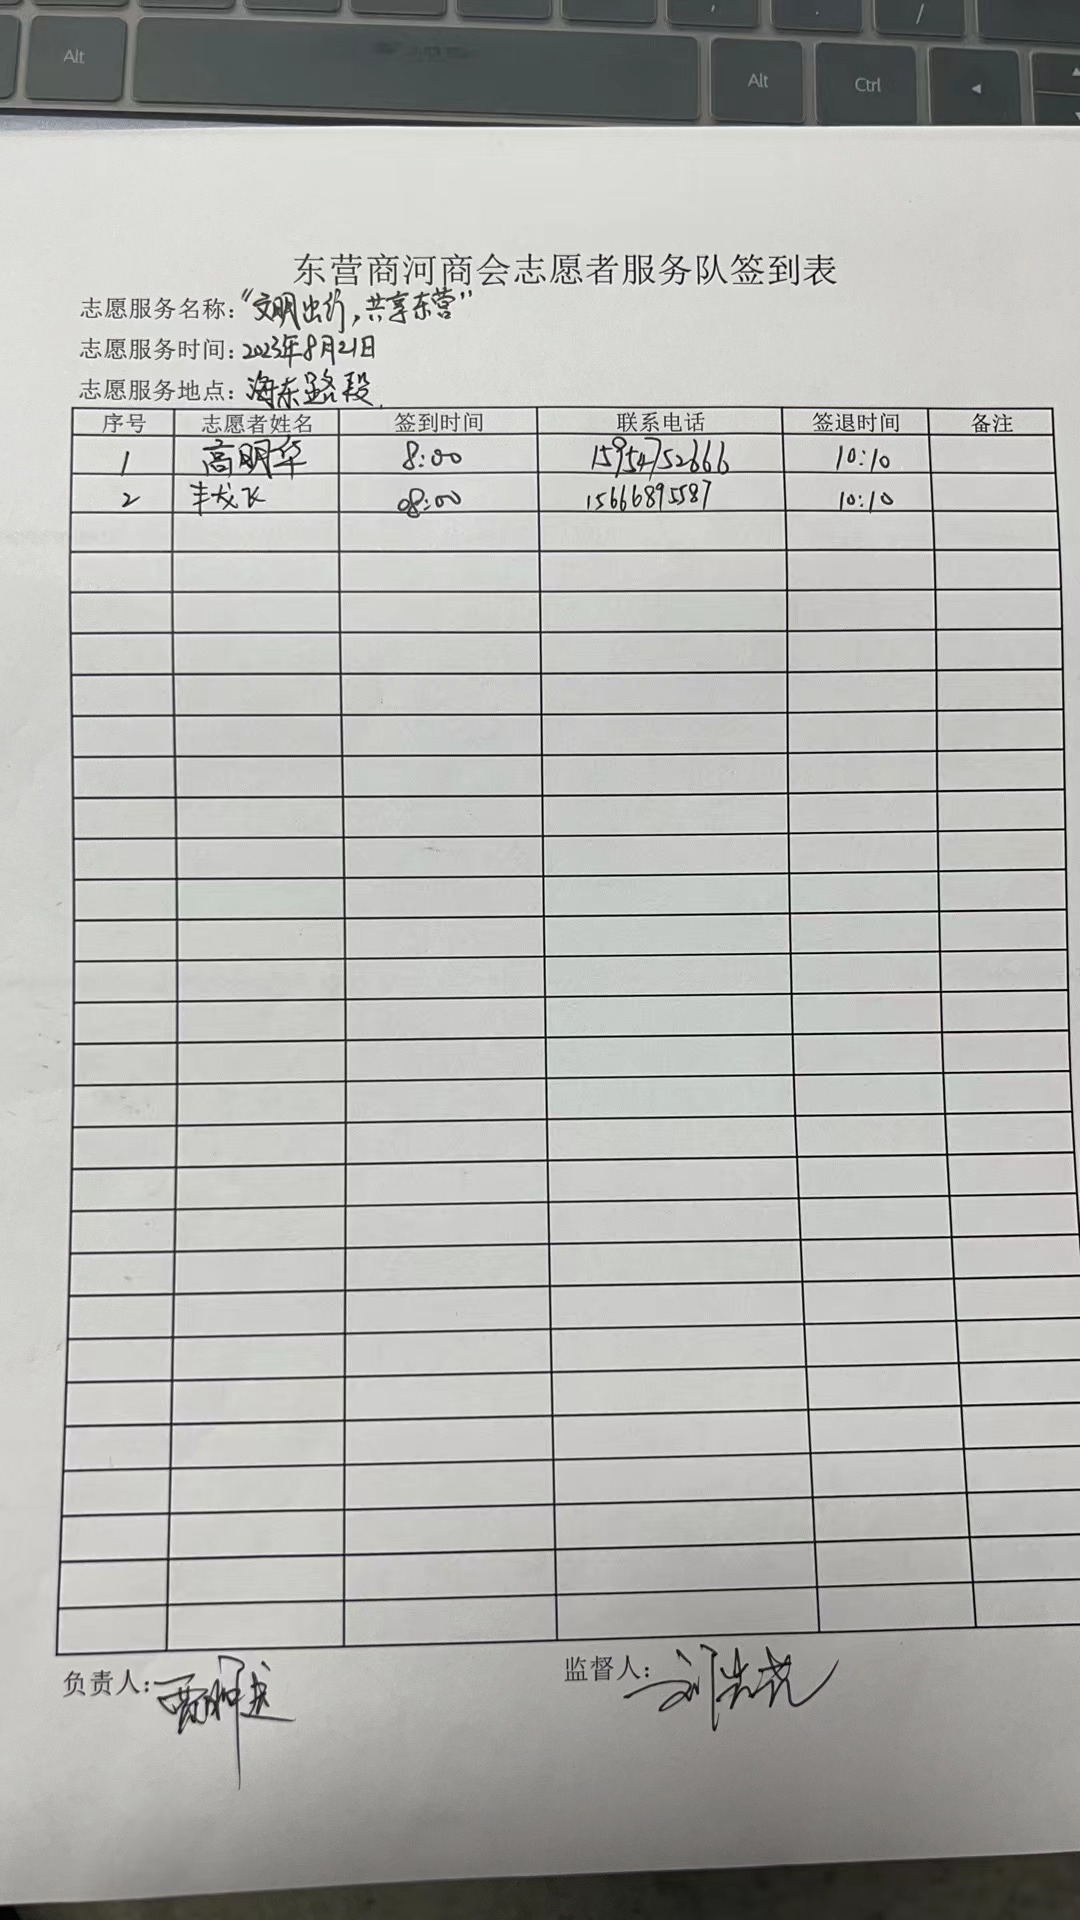 Alt Alt Ctrl , . /
东营商河商会志愿者服务队签到表
志愿服务名称:“文明出行,共享东营”
志愿服务时间:2023年8月21日
志愿服务地点:海东路段
序号 志愿者姓名 签到时间 联系电话 签退时间 备注
1 高明华 8:00 15954752666 10:10
2 龙飞 08:00 15666895587 10:10
负责人: 监督人: